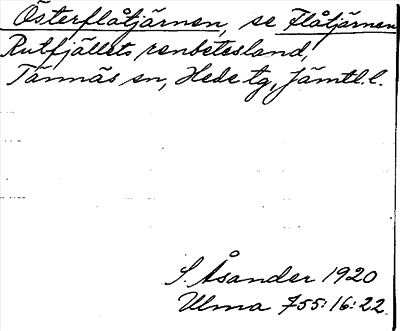 Österflåtjärnen, se Flåtjärnen
Rutfjällets renbetesland,
Tännäs sn, Hede tg, Jämtl.l.
S. Åsander 1920
Ulma 755:16:22.